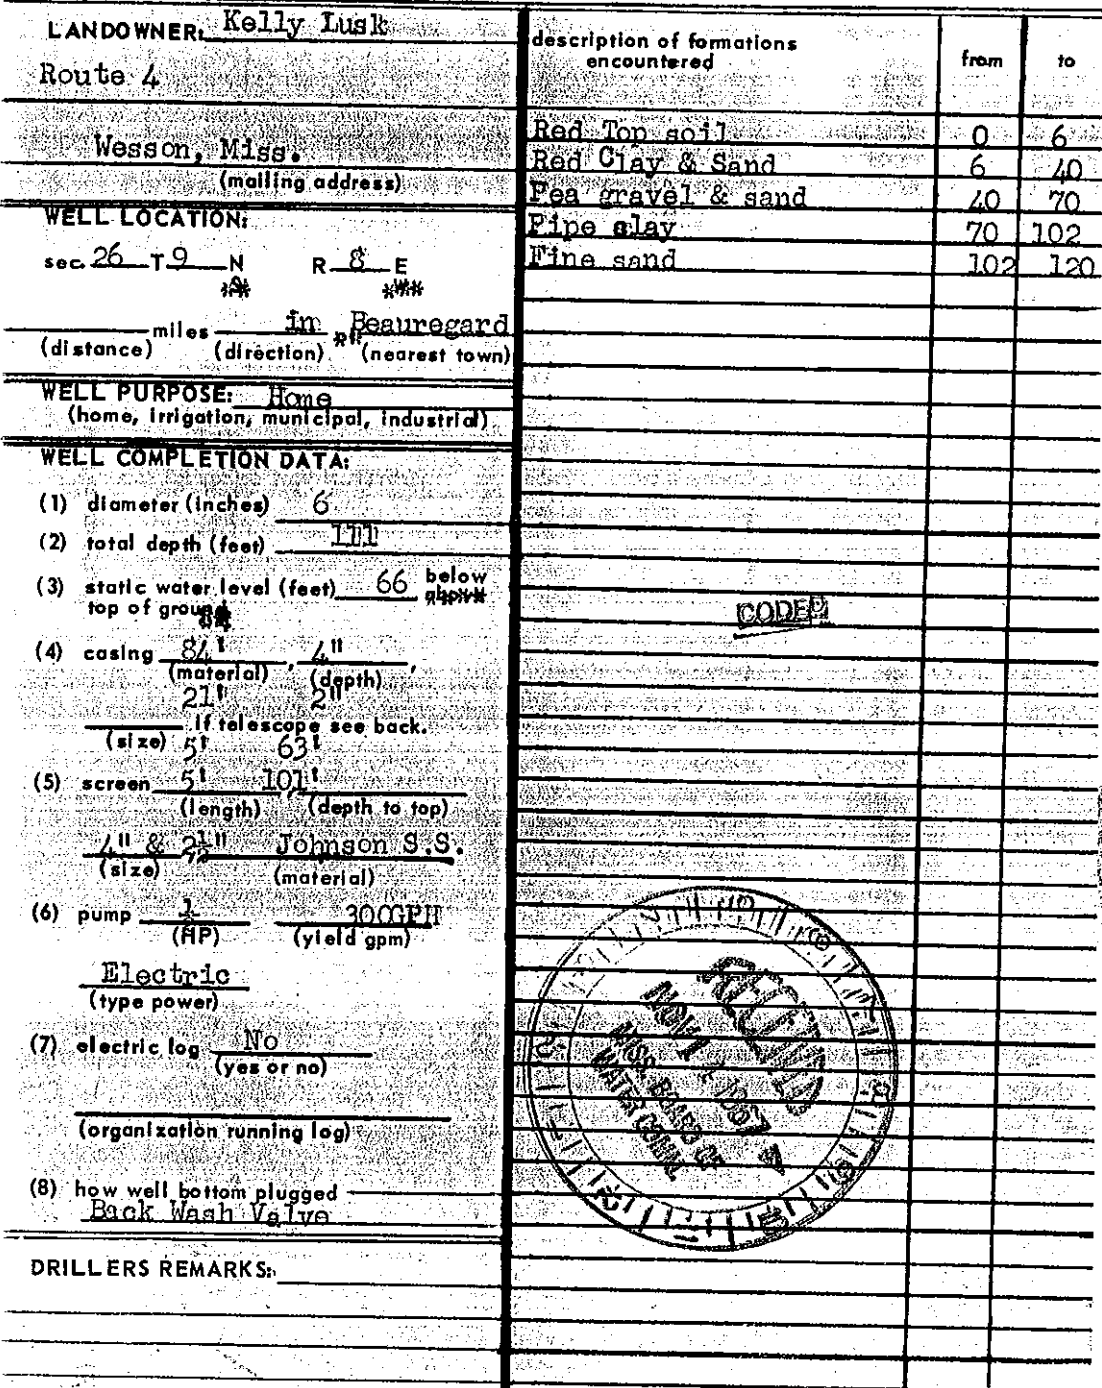 LANDOWNER: Kelly Lusk
Route 4
Wesson, Miss.
(mailing address)
WELL LOCATION:
sec. 26 T 9 N R 8 E
miles in Beauregard
(distance) (direction) (nearest town)
WELL PURPOSE: Home
(home, irrigation, municipal, industrial)
WELL COMPLETION DATA:
(1) diameter (inches) 6
(2) total depth (feet) 111
(3) static water level (feet) 66 below
top of ground
(4) casing 84' , 4" ,
(material) (depth)
21' 2"
(size) If telescope see back.
5' 63'
(5) screen 5' 101'
(length) (depth to top)
4" & Johnson S.S.
(size) (material)
(6) pump
(HP) (yield gpm)
Electric
(type power)
(7) electric log No
(yes or no)
(organization running log)
(8) how well bottom plugged
Back Wash Valve
DRILLERS REMARKS:
description of formations
encountered
from to
Red Top soil 0 6
Red Clay & Sand 6 40
Pea gravel & sand 40 70
Pipe clay 70 102
Fine sand 102 120
CODED
RECEIVED
MISS. BOARD OF
WATER COMM.